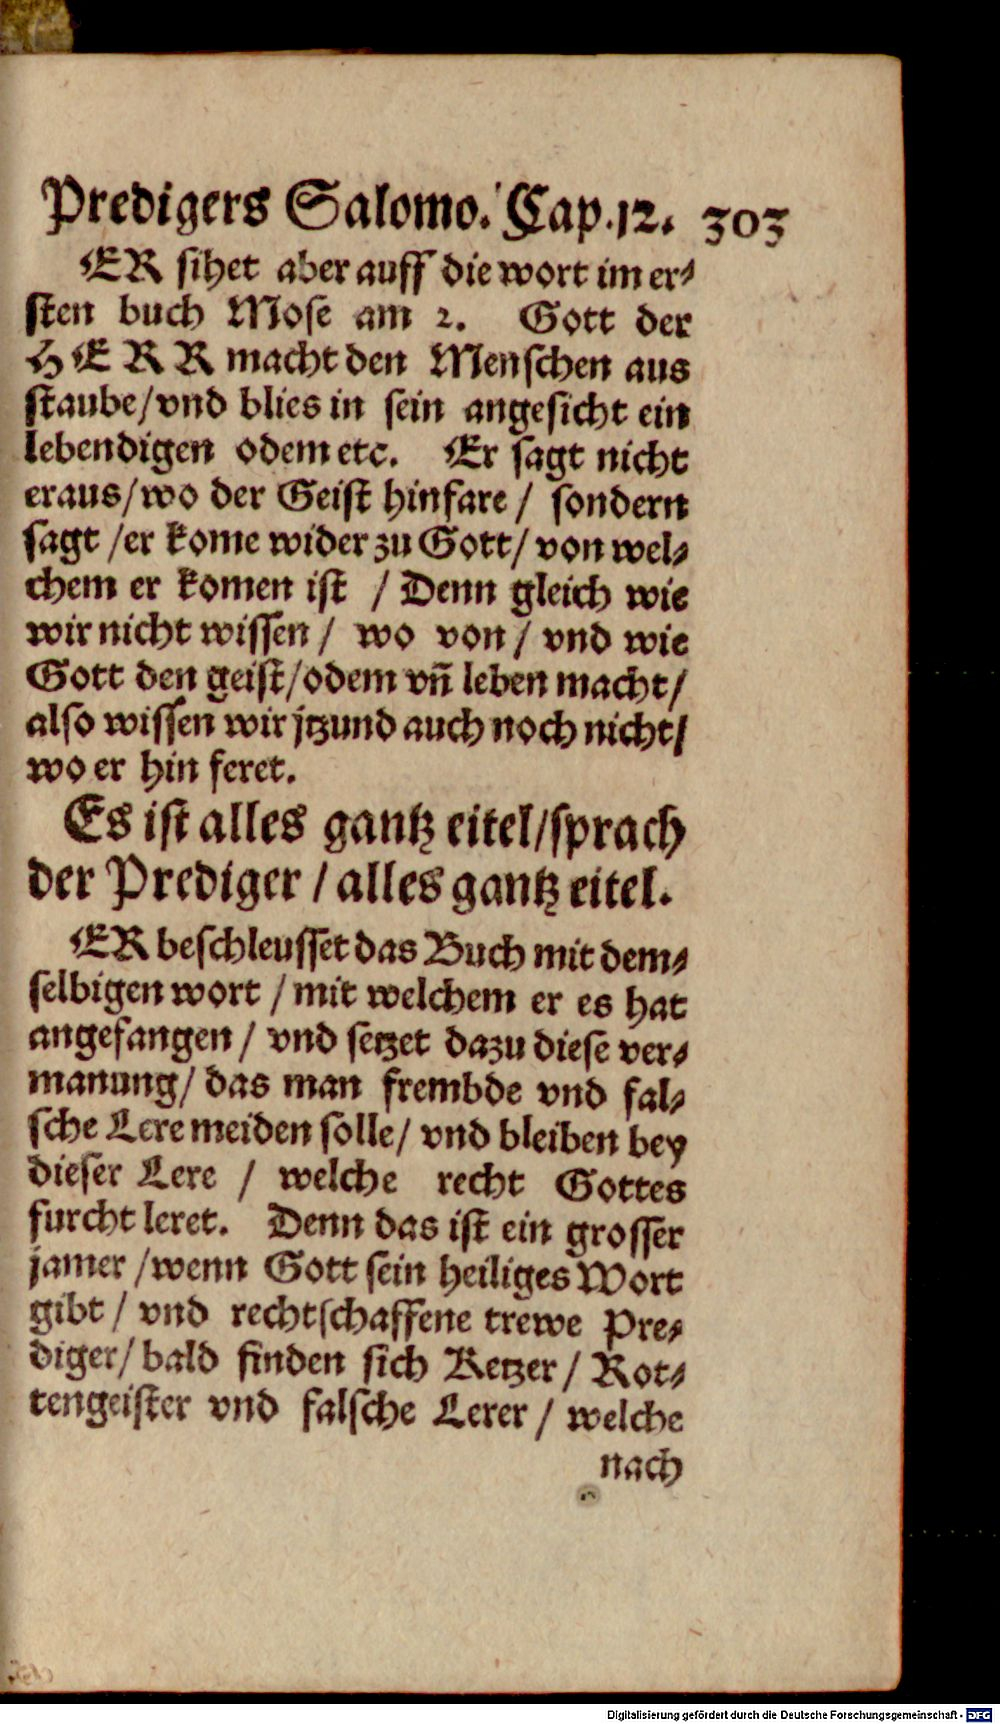 Predigers Salomo. Cap.12. 303
ER sihet aber auff die wort im er⸗
sten buch Mose am 2. Gott der
HERR macht den Menschen aus
staube/vnd blies in sein angesicht ein
lebendigen odem etc. Er sagt nicht
eraus/wo der Geist hinfare / sondern
sagt /er kome wider zu Gott/ von wel⸗
chem er komen ist / Denn gleich wie
wir nicht wissen / wo von / vnd wie
Gott den geist/odem vñ leben macht/
also wissen wir jtzund auch noch nicht/
wo er hin feret.
Es ist alles gantz eitel/sprach
der Prediger / alles gantz eitel.
ER beschleusset das Buch mit dem⸗
selbigen wort / mit welchem er es hat
angefangen / vnd setzet dazu diese ver⸗
manung/ das man frembde vnd fal⸗
sche Lere meiden solle/ vnd bleiben bey
dieser Lere / welche recht Gottes
furcht leret. Denn das ist ein grosser
jamer /wenn Gott sein heiliges Wort
gibt / vnd rechtschaffene trewe Pre⸗
diger/ bald finden sich Ketzer / Rot⸗
tengeister vnd falsche Lerer / welche
nach
Digitalisierung gefördert durch die Deutsche Forschungsgemeinschaft - DFG